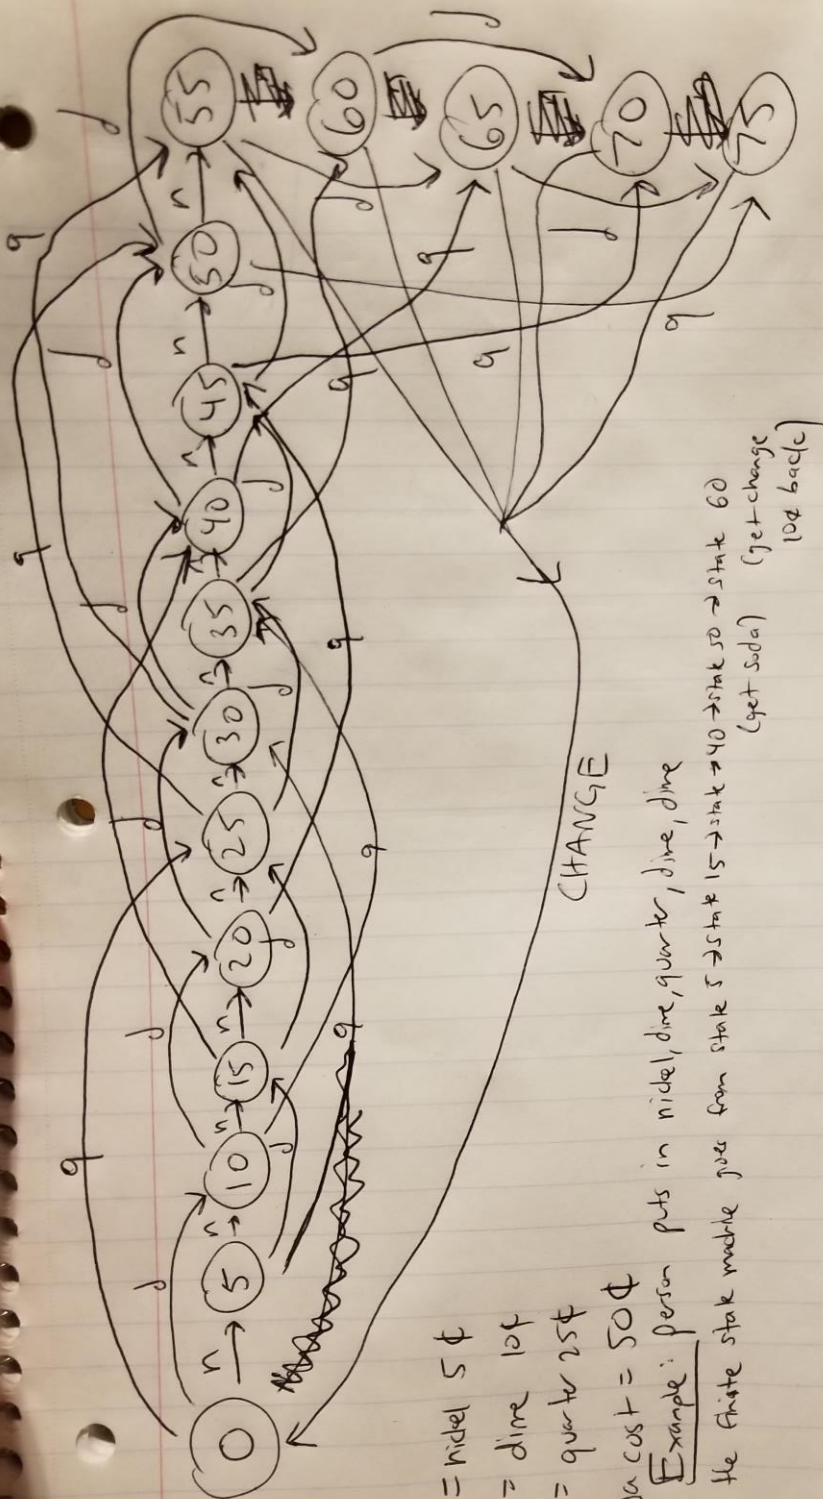 0
5
10
15
20
25
30
35
40
45
50
55
60
65
70
75
n
n
n
n
n
n
n
n
n
n
n
d
d
d
d
d
d
d
d
d
d
d
d
d
d
q
q
q
q
q
q
q
q
q
q
q
CHANGE
= nickel 5¢
= dime 10¢
= quarter 25¢
a cost = 50¢
Example: person puts in nickel, dime, quarter, dime, dime
the finite state machine goes from state 5 → state 15 → state → 40 → state 50 → state 60
(get soda) (get change
10¢ back)